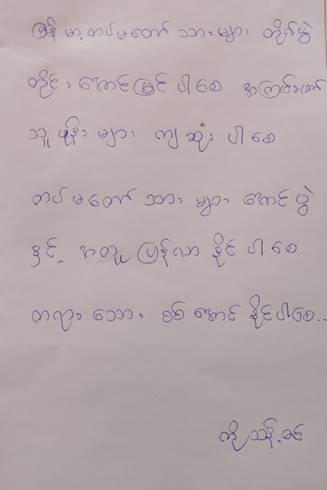 မြန်မာ့တပ်မတော်သားများ တိုက်ပွဲ
တိုင်း အောင်မြင်ပါစေ အကြမ်းဖက်
သူပုန်းများ ကျဆုံးပါစေ
တပ်မတော်သားများ အောင်ပွဲ
နှင့် အတူ ပြန်လာနိုင်ပါစေ
တရားသော စစ်အောင်နိုင်ပါစေ..
ကို